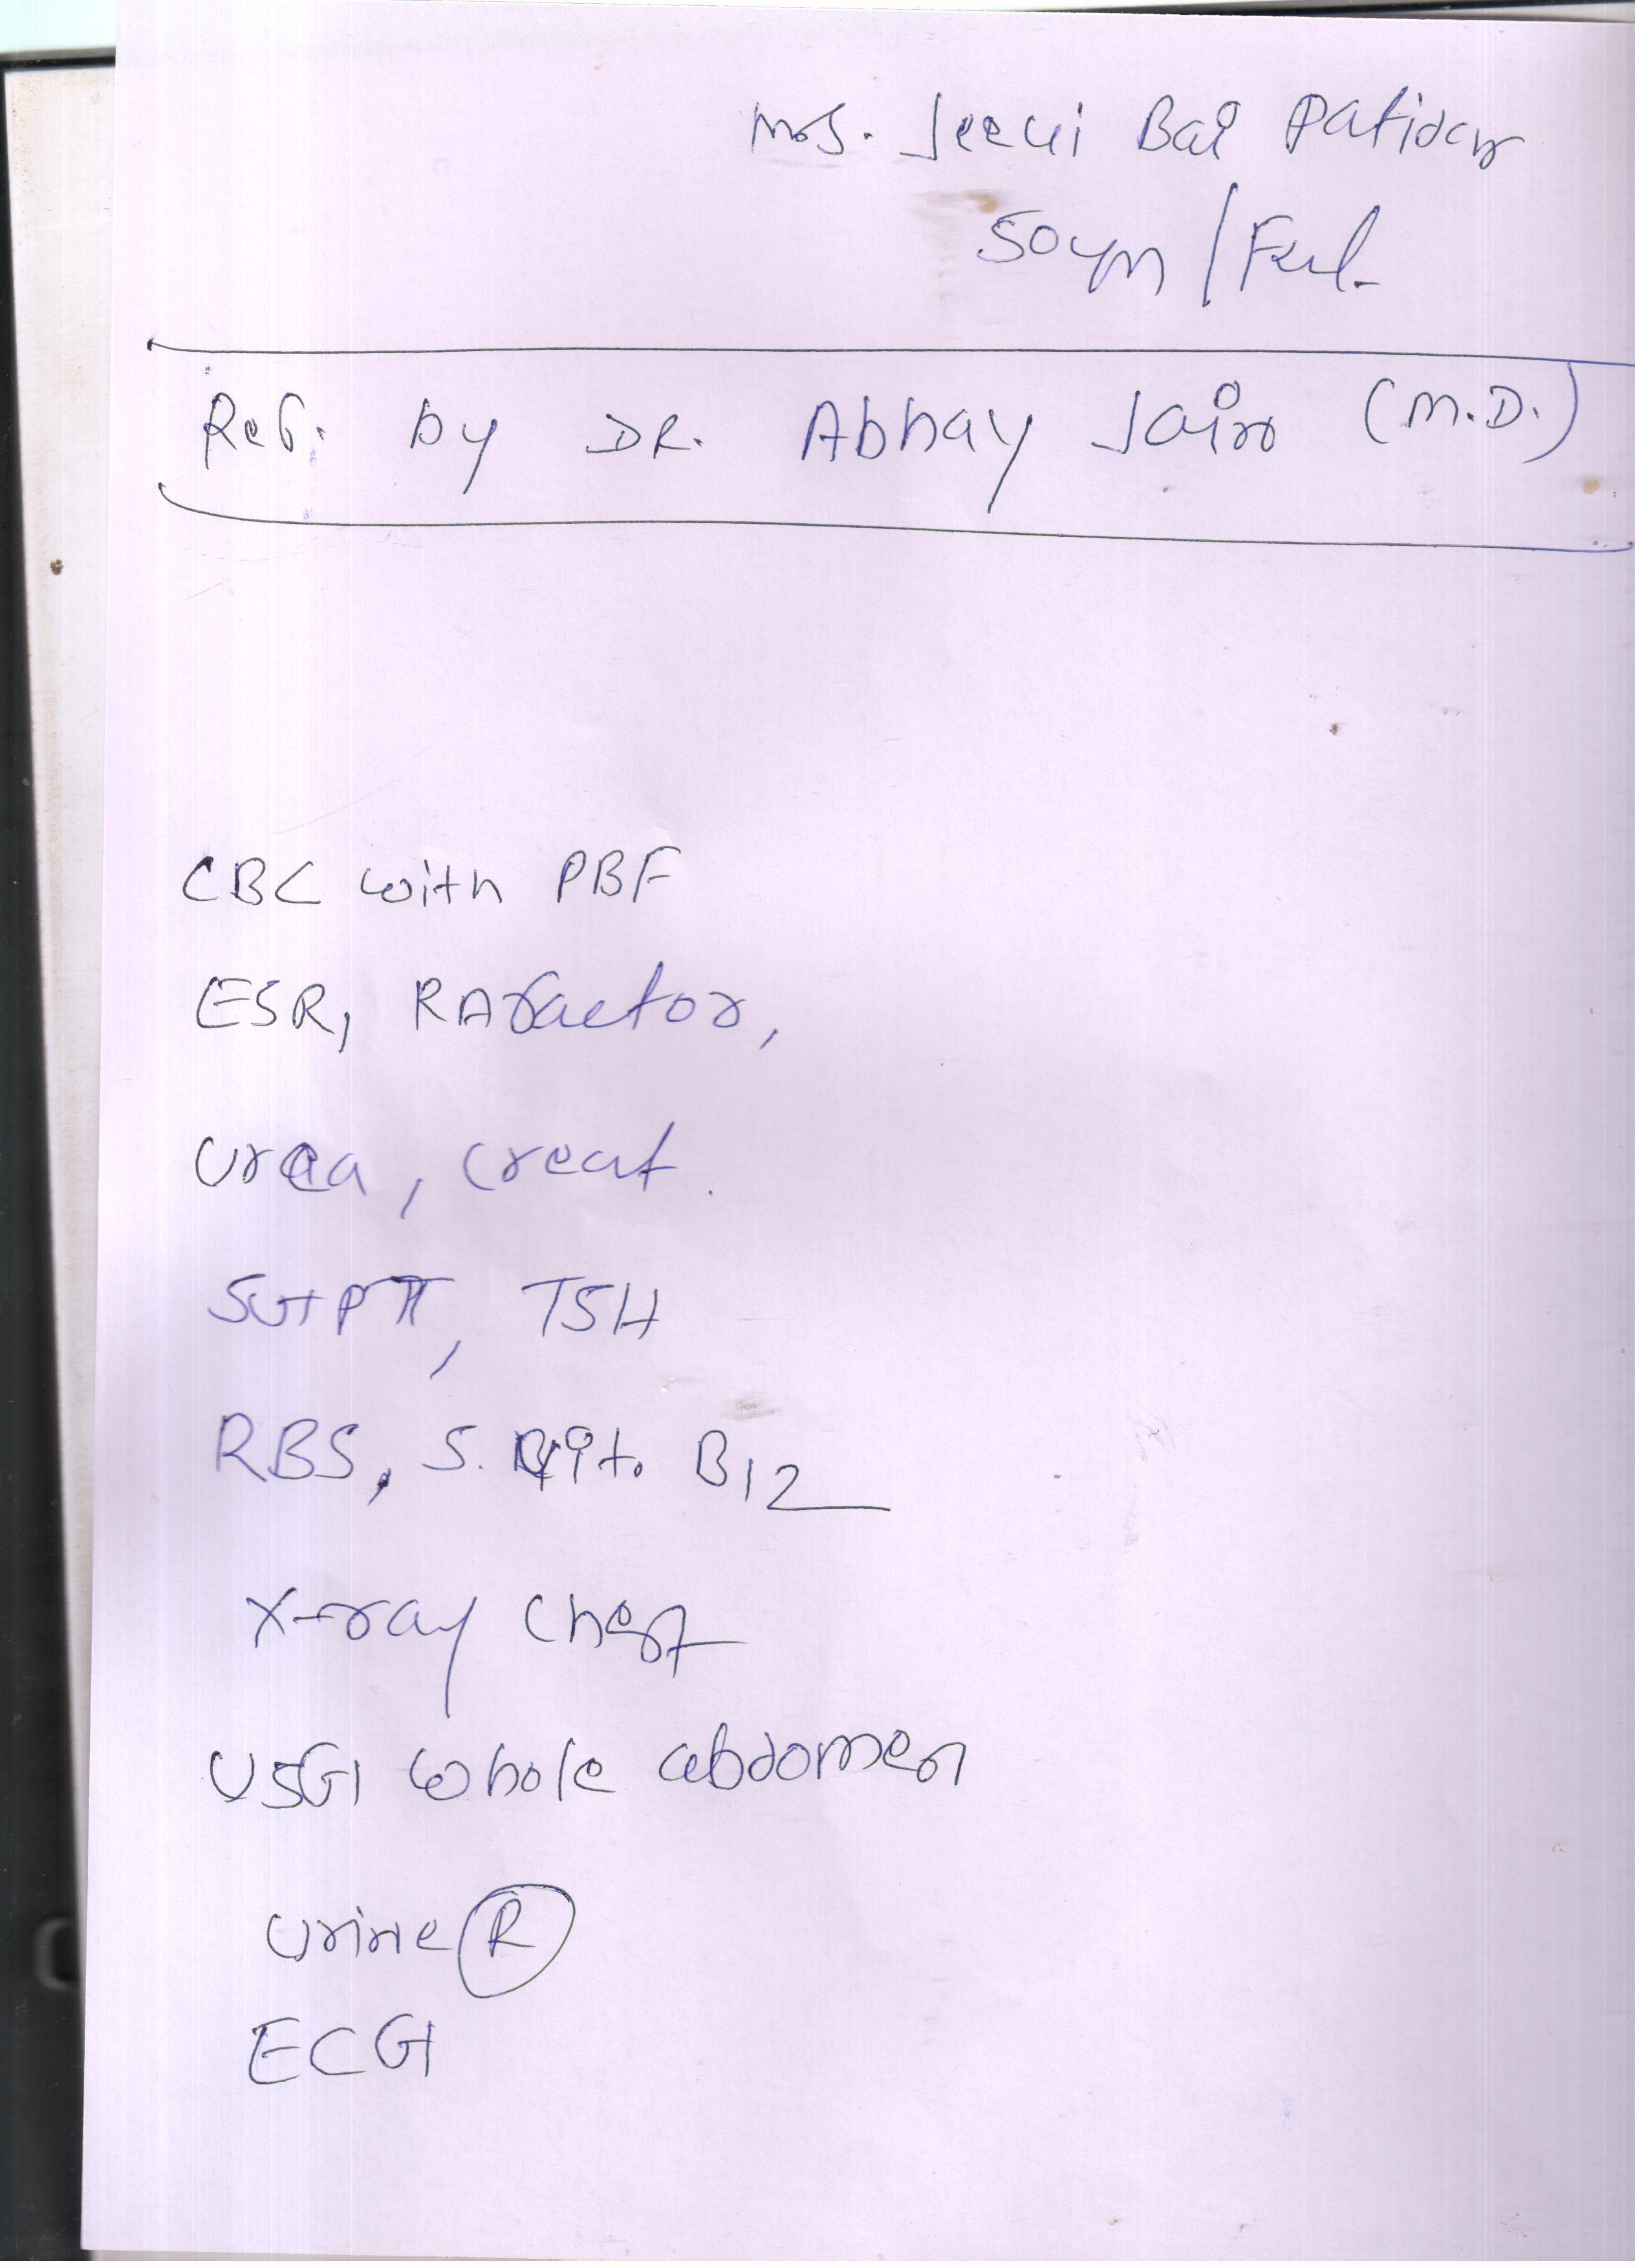 Mrs. Jeeui Bai Patidar
50yrs / Feml.
Ref. by DR. Abhay Jain (M.D.)
CBC with PBF
ESR, RA factor,
Urea, Creat.
SGPT, TSH
RBS, S. Vit. B12
X-ray Chest
USG whole abdomen
Urine R
ECG